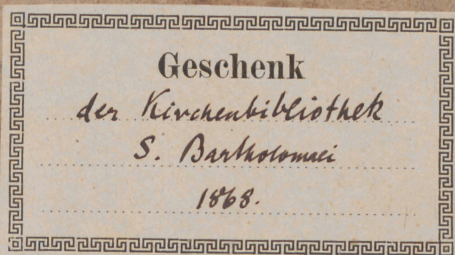 Geschenk
der Kirchenbibliothek
S. Bartholomaei
1868.